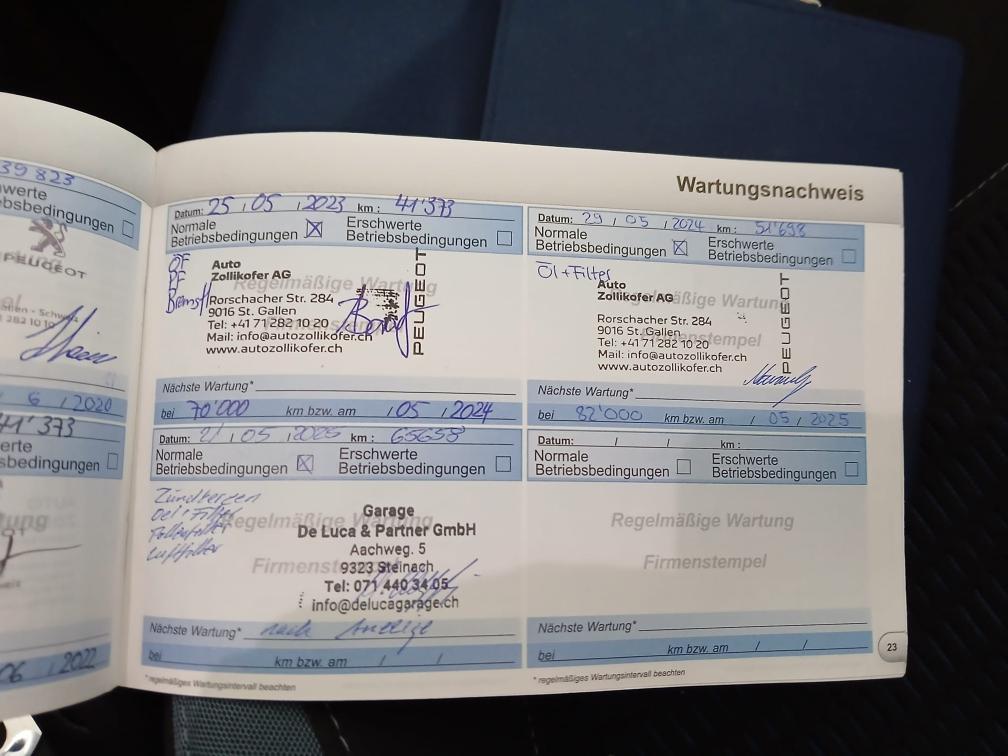 39 823
werte
ebsbedingungen
PEUGEOT
6 / 2020
41'373
erte
sbedingungen
06 / 2022
Wartungsnachweis
Datum: 25 / 05 / 2023 km : 41'373
Normale
Betriebsbedingungen
Erschwerte
Betriebsbedingungen
ÖF
PF
Bremsfl
Auto
Zollikofer AG
Regelmäßige Wartung
Rorschacher Str. 284
9016 St. Gallen
Tel: +41 71 282 10 20
Mail: info@autozollikofer.ch
www.autozollikofer.ch
PEUGEOT
Nächste Wartung*
bei 70'000 km bzw. am / 05 / 2024
Datum: 29 / 05 / 2024 km : 51'698
Normale
Betriebsbedingungen
Erschwerte
Betriebsbedingungen
Öl + Filter
Auto
Zollikofer AG
Regelmäßige Wartung
Rorschacher Str. 284
9016 St. Gallen
Firmenstempel
Tel: +41 71 282 10 20
Mail: info@autozollikofer.ch
www.autozollikofer.ch
PEUGEOT
Nächste Wartung*
bei 82'000 km bzw. am / 05 / 2025
Datum: 21 / 05 / 2025 km : 65658
Normale
Betriebsbedingungen
Erschwerte
Betriebsbedingungen
Zündkerzen
Oel + Filter
Pollenfilter
Luftfilter
Regelmäßige Wartung
Firmenstempel
Garage
De Luca & Partner GmbH
Aachweg. 5
9323 Steinach
Tel: 071 440 34 05
info@delucagarage.ch
Nächste Wartung* nach Anzeige
bei km bzw. am / /
* regelmäßiges Wartungsintervall beachten
Datum: / / km :
Normale
Betriebsbedingungen
Erschwerte
Betriebsbedingungen
Regelmäßige Wartung
Firmenstempel
Nächste Wartung*
bei km bzw. am / /
* regelmäßiges Wartungsintervall beachten
23